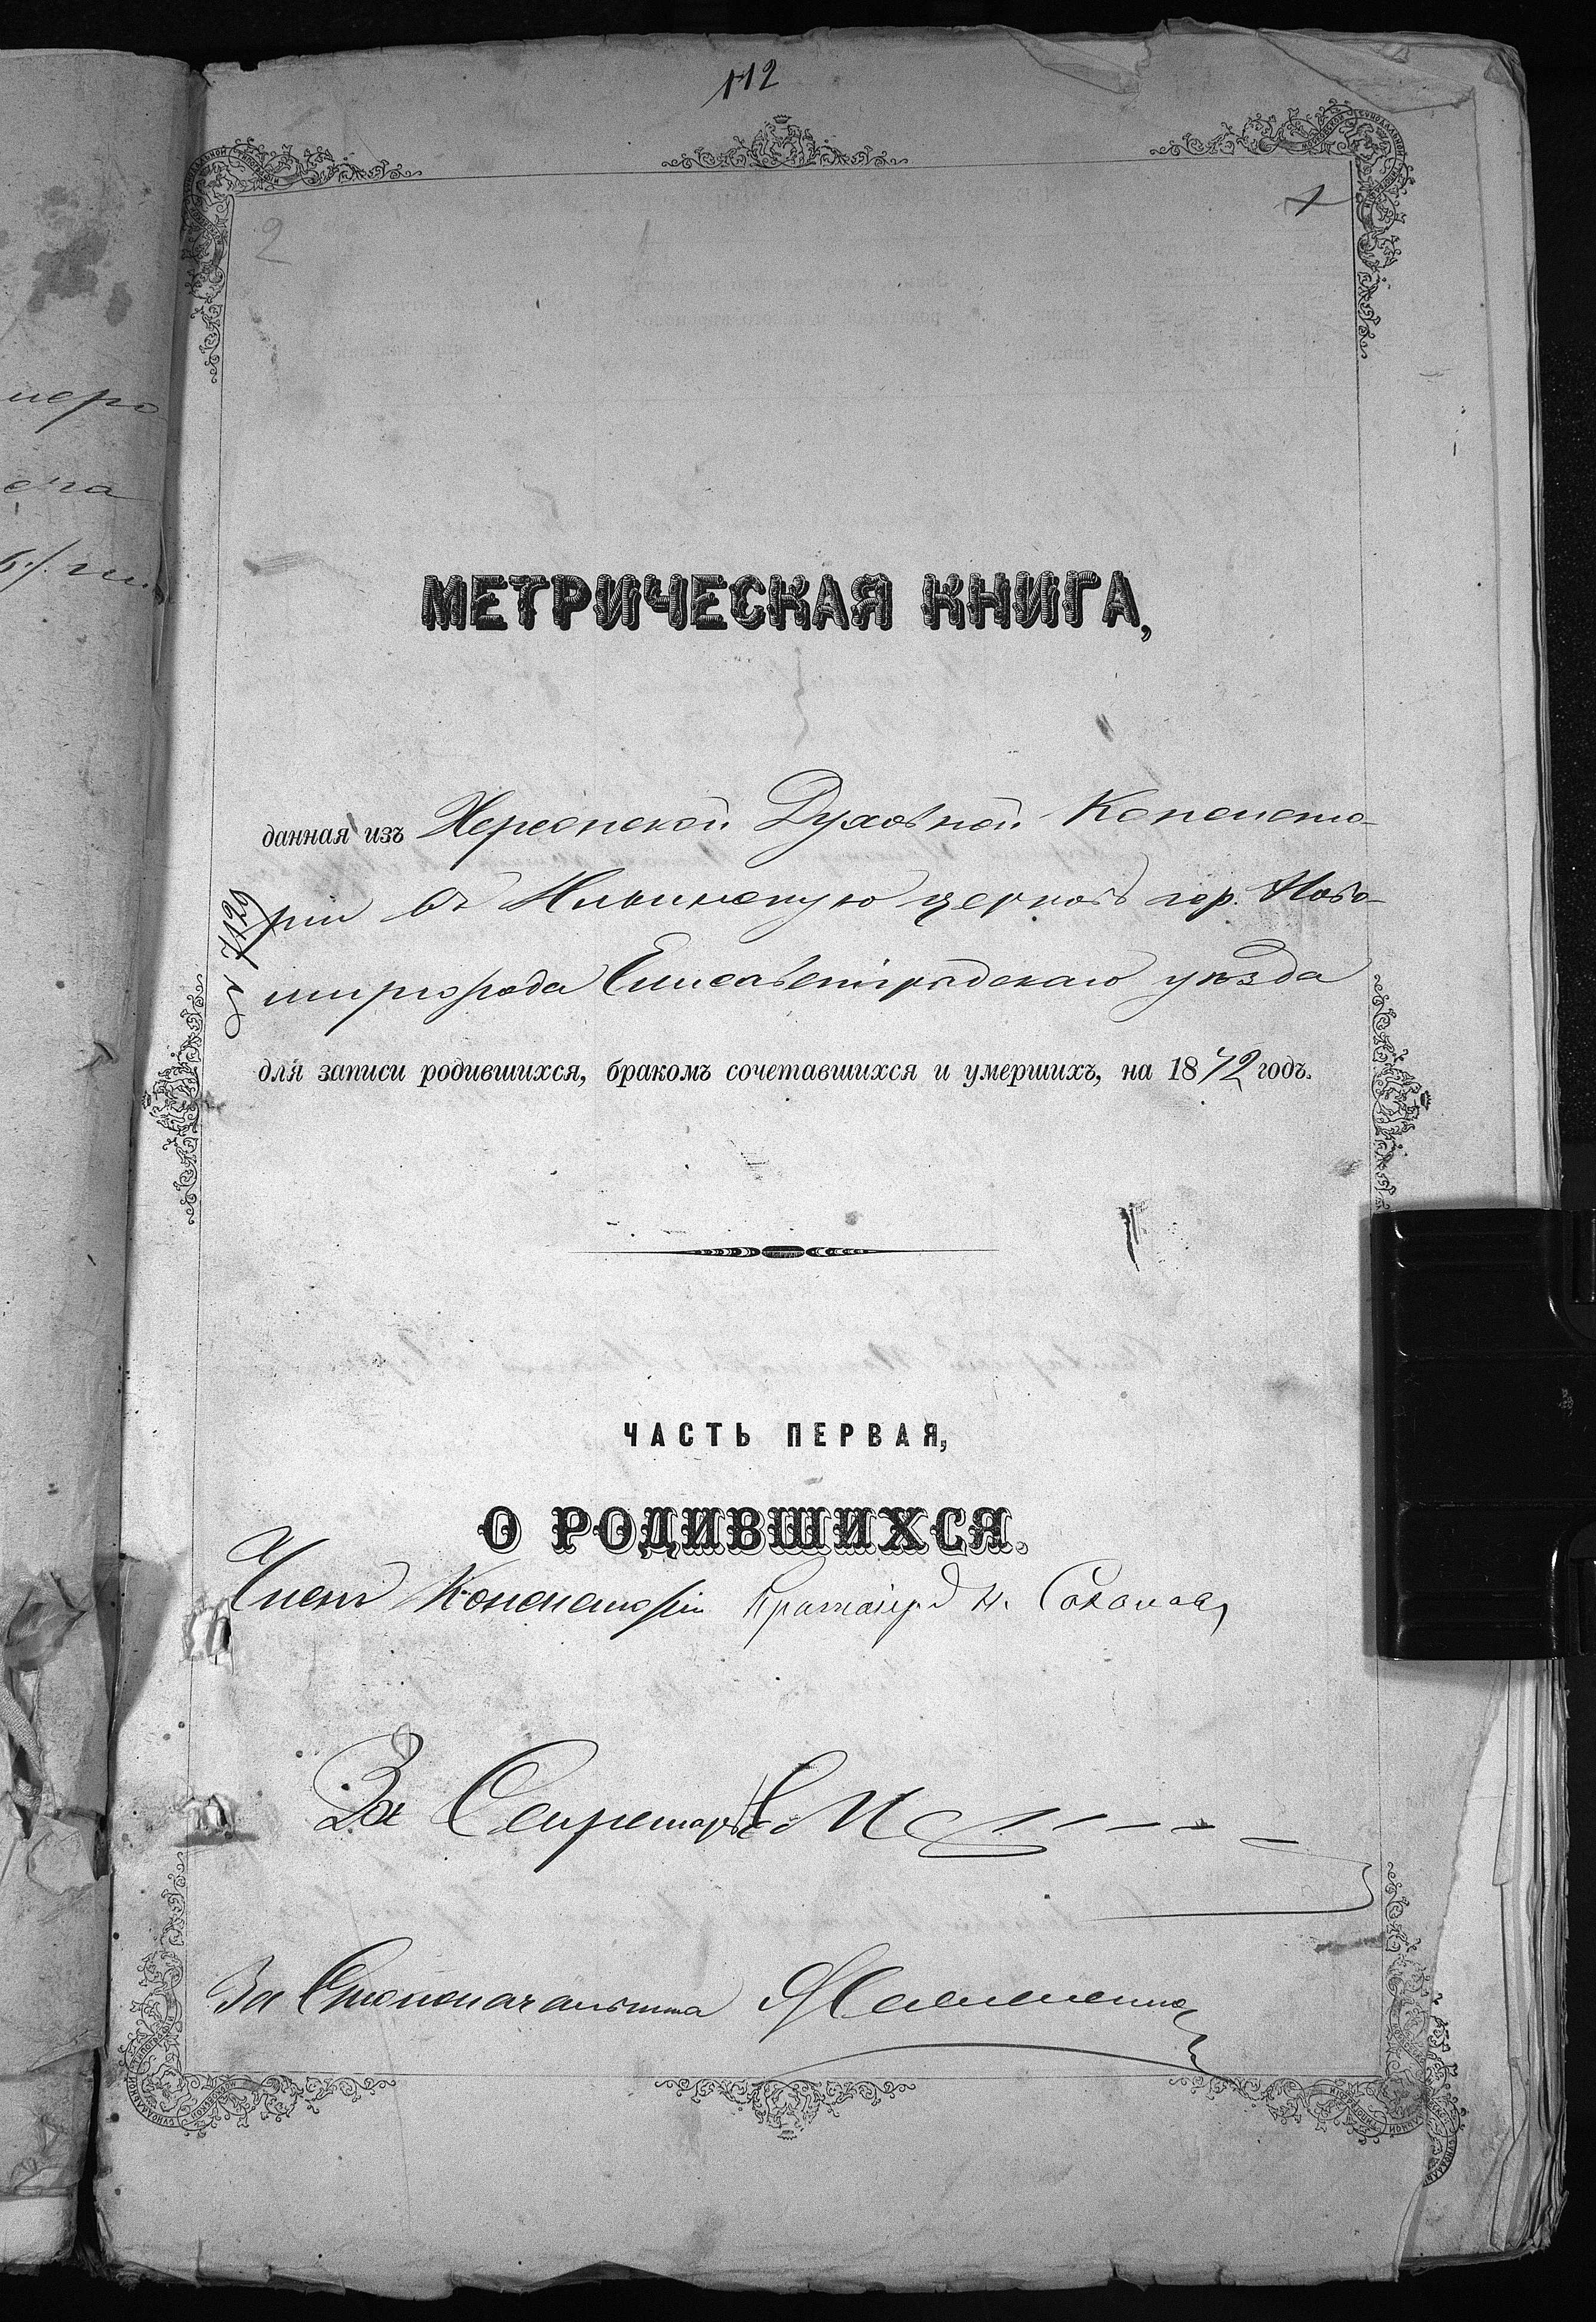 112
2
1
МЕТРИЧЕСКАЯ КНИГА,
данная изъ Херсонской Духовной Консисто-
ріи въ Ильинскую церковь гор. Ново-
миргорода Елисаветградскаго уѣзда
№ 7120
для записи родившихся, бракомъ сочетавшихся и умершихъ, на 1872 годъ.
ЧАСТЬ ПЕРВАЯ,
О РОДИВШИХСЯ.
Членъ Консисторіи Н. Соколовъ
За Секретаря
За Столоначальника